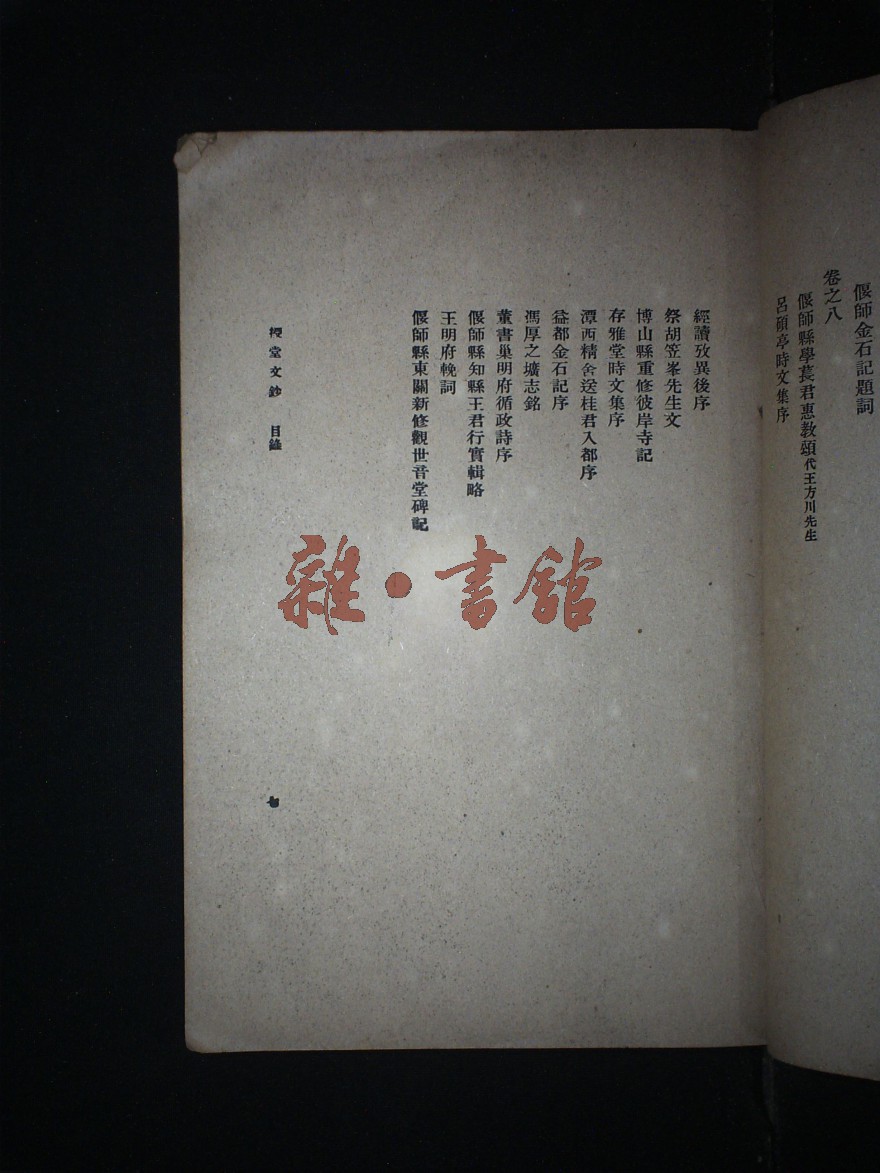 偃師金石記題詞
卷之八
偃師縣學萇君惠教頌代王方川先生
呂碩亭時文集序
經讀攷異後序
祭胡笠峯先生文
博山縣重修彼岸寺記
存雅堂時文集序
潭西精舍送桂君入都序
益都金石記序
馮厚之壙志銘
董書巢明府循政詩序
偃師縣知縣王君行實輯略
王明府輓詞
偃師縣東關新修觀世音堂碑記
授堂文鈔 目錄
七
雜·書館